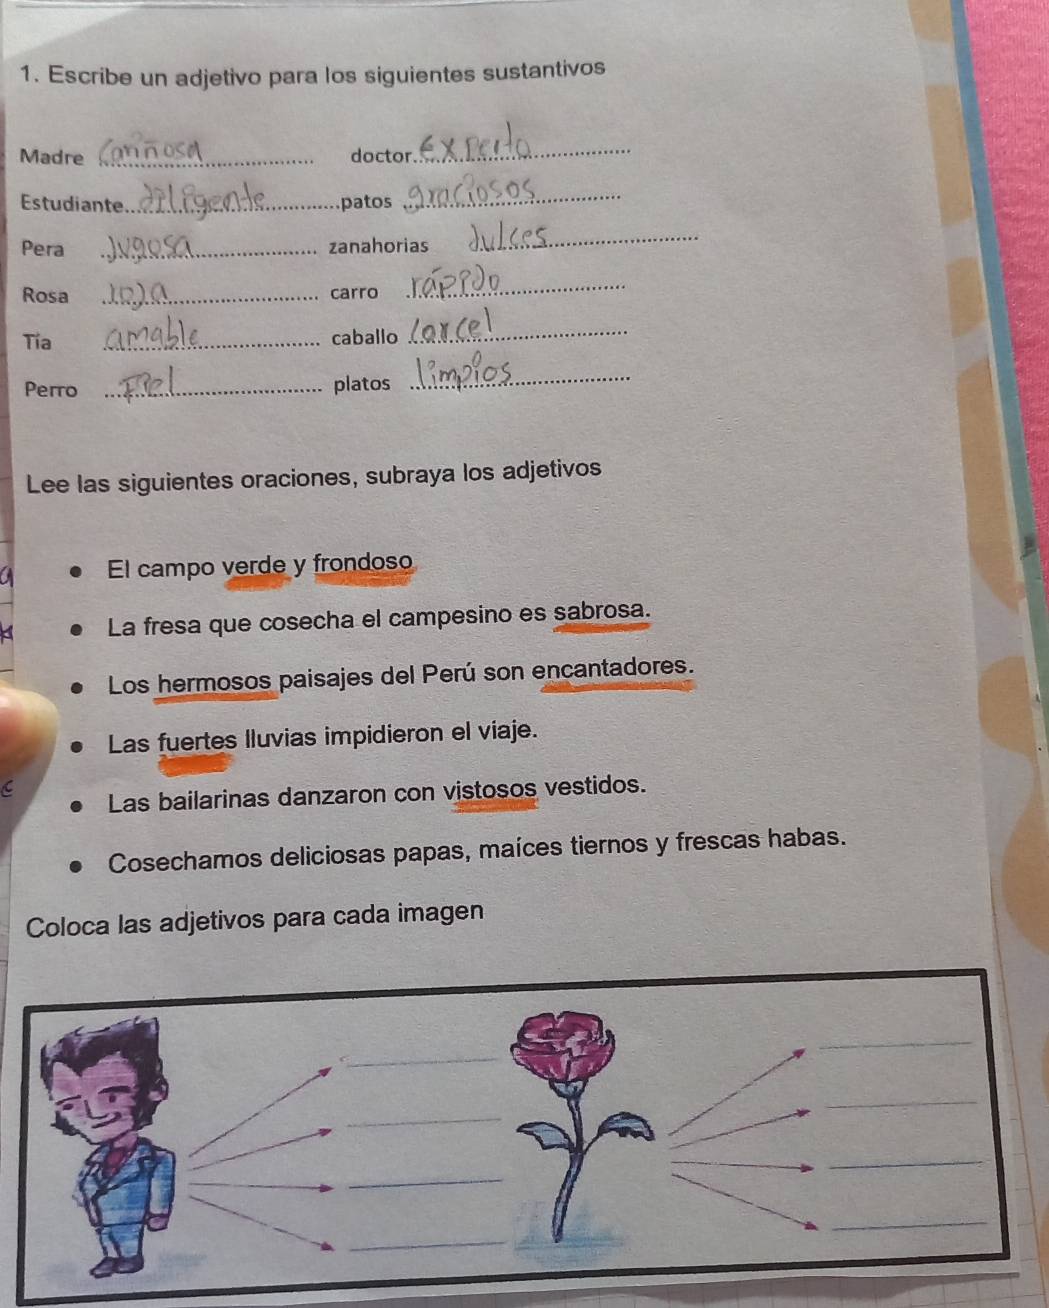 1. Escribe un adjetivo para los siguientes sustantivos
Madre Cariñosa doctor Experto
Estudiante diligente patos graciosos
Pera Jugosa zanahorias dulces
Rosa roja carro rápido
Tía amable caballo corcel
Perro Fiel platos limpios
Lee las siguientes oraciones, subraya los adjetivos
• El campo verde y frondoso
• La fresa que cosecha el campesino es sabrosa.
• Los hermosos paisajes del Perú son encantadores.
• Las fuertes lluvias impidieron el viaje.
• Las bailarinas danzaron con vistosos vestidos.
• Cosechamos deliciosas papas, maíces tiernos y frescas habas.
Coloca las adjetivos para cada imagen